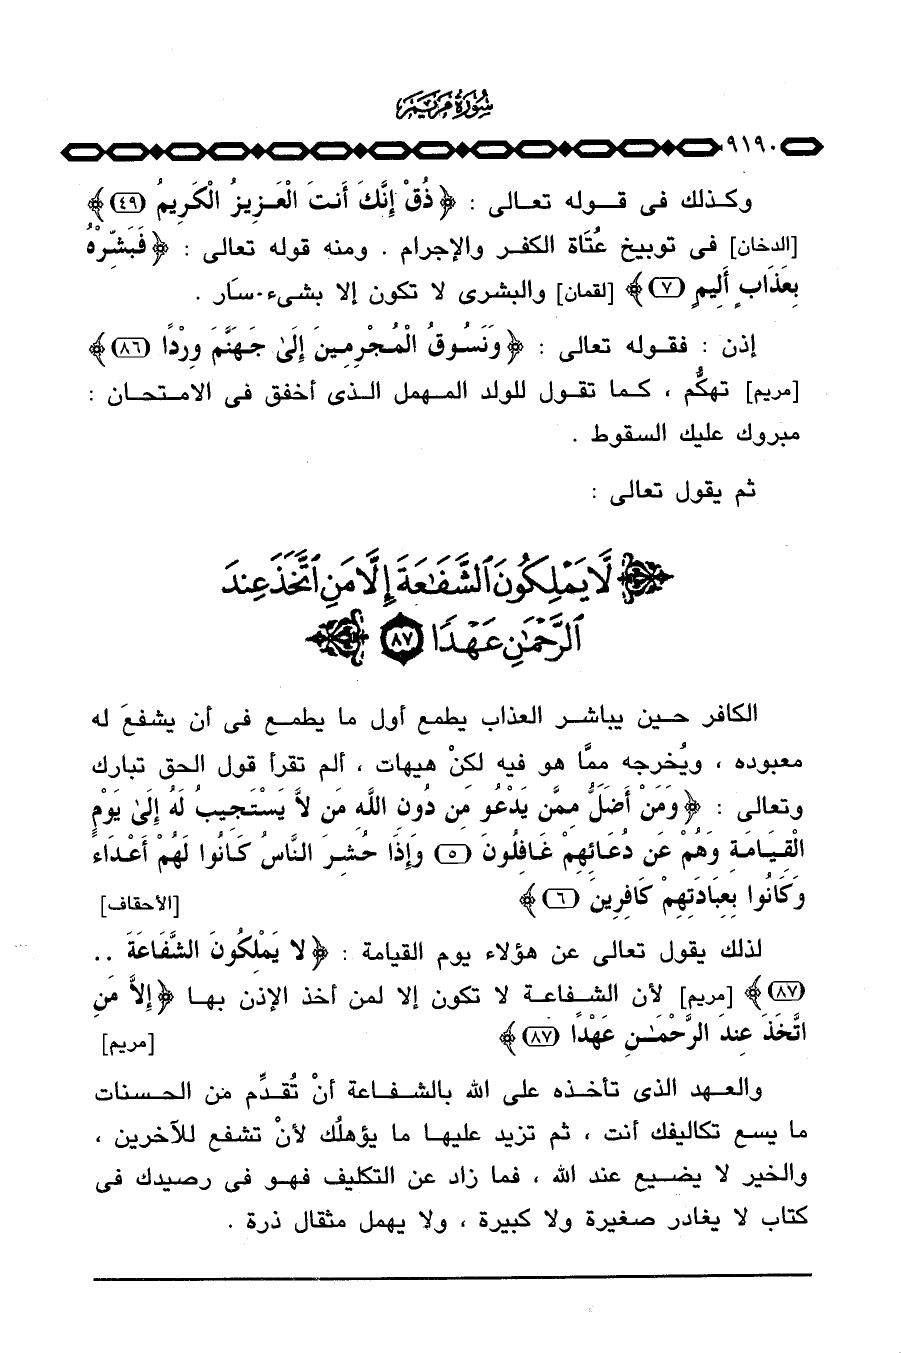 سُورَةُ مَرْيَمَ
٩١٩٠
وكـذلك فى قـوله تعـالى : ﴿ ذُقْ إِنَّكَ أَنتَ الْعَزِيزُ الْكَرِيمُ (٤٩) ﴾
[الدخان] فى توبيخ عُتَاة الكفر والإجرام . ومنه قوله تعالى : ﴿ فَبَشِّرْهُ
بِعَذَابٍ أَلِيمٍ (٧) ﴾ [لقمان] والبشرى لا تكون إلا بشىء سَار .
إذن : فقـوله تعالى : ﴿ وَنَسُوقُ الْمُجْرِمِينَ إِلَىٰ جَهَنَّمَ وِرْدًا (٨٦) ﴾
[مريم] تهكُّم ، كـما تقـول للولد المـهمل الـذى أخفق فى الامـتحـان :
مبروك عليك السقوط .
ثم يقول تعالى :
لَّا يَمْلِكُونَ ٱلشَّفَـٰعَةَ إِلَّا مَنِ ٱتَّخَذَ عِندَ
ٱلرَّحْمَـٰنِ عَهْدًا ٨٧
الكافر حـين يباشـر العذاب يطمع أول ما يطمـع فى أن يشفعَ له
معبوده ، ويُخرجه ممَّا هو فيه لكنْ هيهات ، ألم تقرأ قول الحق تبارك
وتعالى : ﴿ وَمَنْ أَضَلُّ مِمَّن يَدْعُو مِن دُونِ اللَّهِ مَن لاَّ يَسْتَجِيبُ لَهُ إِلَىٰ يَوْمِ
الْقِيَامَةِ وَهُمْ عَن دُعَائِهِمْ غَافِلُونَ (٥) وَإِذَا حُشِرَ النَّاسُ كَانُوا لَهُمْ أَعْدَاءً
وَكَانُوا بِعِبَادَتِهِمْ كَافِرِينَ (٦) ﴾ [الأحقاف]
لذلك يقول تعالى عن هؤلاء يوم القيامة : ﴿ لا يَمْلِكُونَ الشَّفَاعَةَ ..
(٨٧) ﴾ [مريم] لأن الشـفاعـة لا تكون إلا لمن أخذ الإذن بهـا ﴿ إِلاَّ مَنِ
اتَّخَذَ عِندَ الرَّحْمَـٰنِ عَهْدًا (٨٧) ﴾ [مريم]
والعـهد الذى تأخـذه على الله بالشـفـاعة أنْ تُقـدِّم من الحـسنات
ما يسع تكاليفك أنت ، ثم تزيد عليهـا ما يؤهلُك لأنْ تشفع للآخرين ،
والخير لا يضـيع عند الله ، فما زاد عن التكليف فهـو فى رصيدك فى
كتاب لا يغادر صغيرة ولا كبيرة ، ولا يهمل مثقال ذرة .